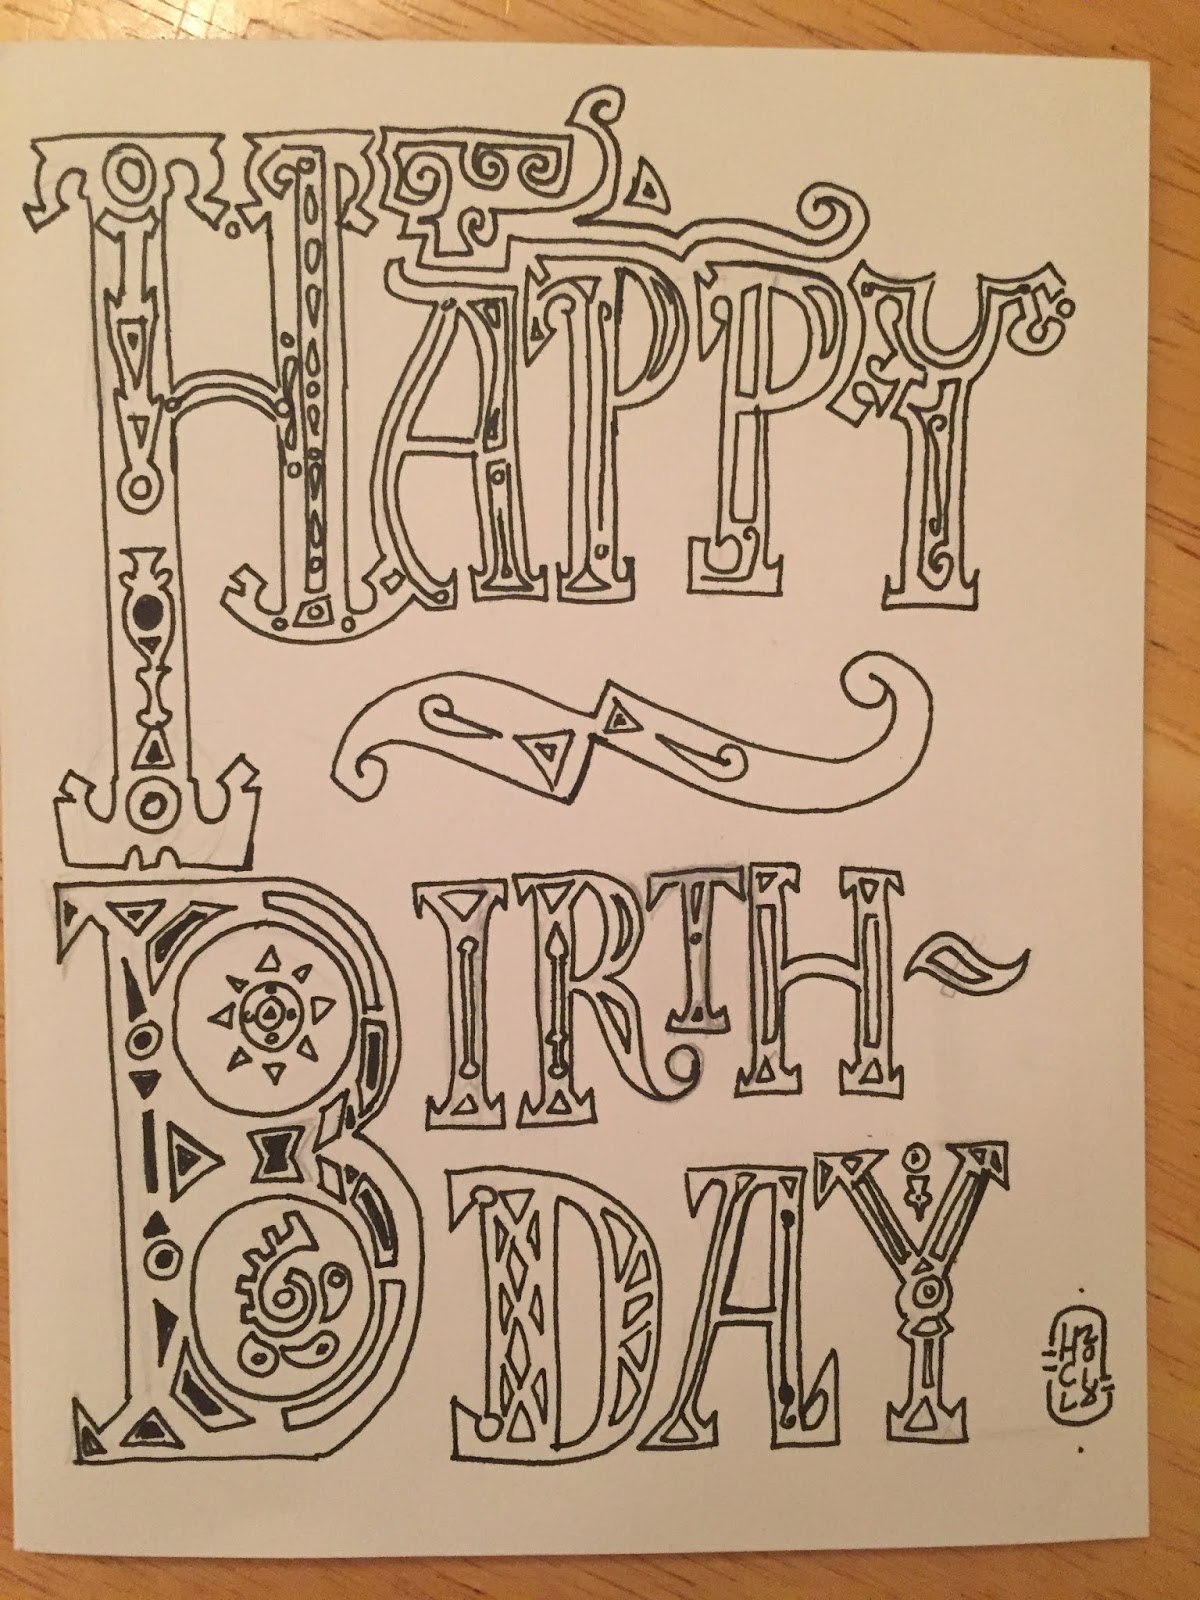 HAPPY
BIRTH~
DAY